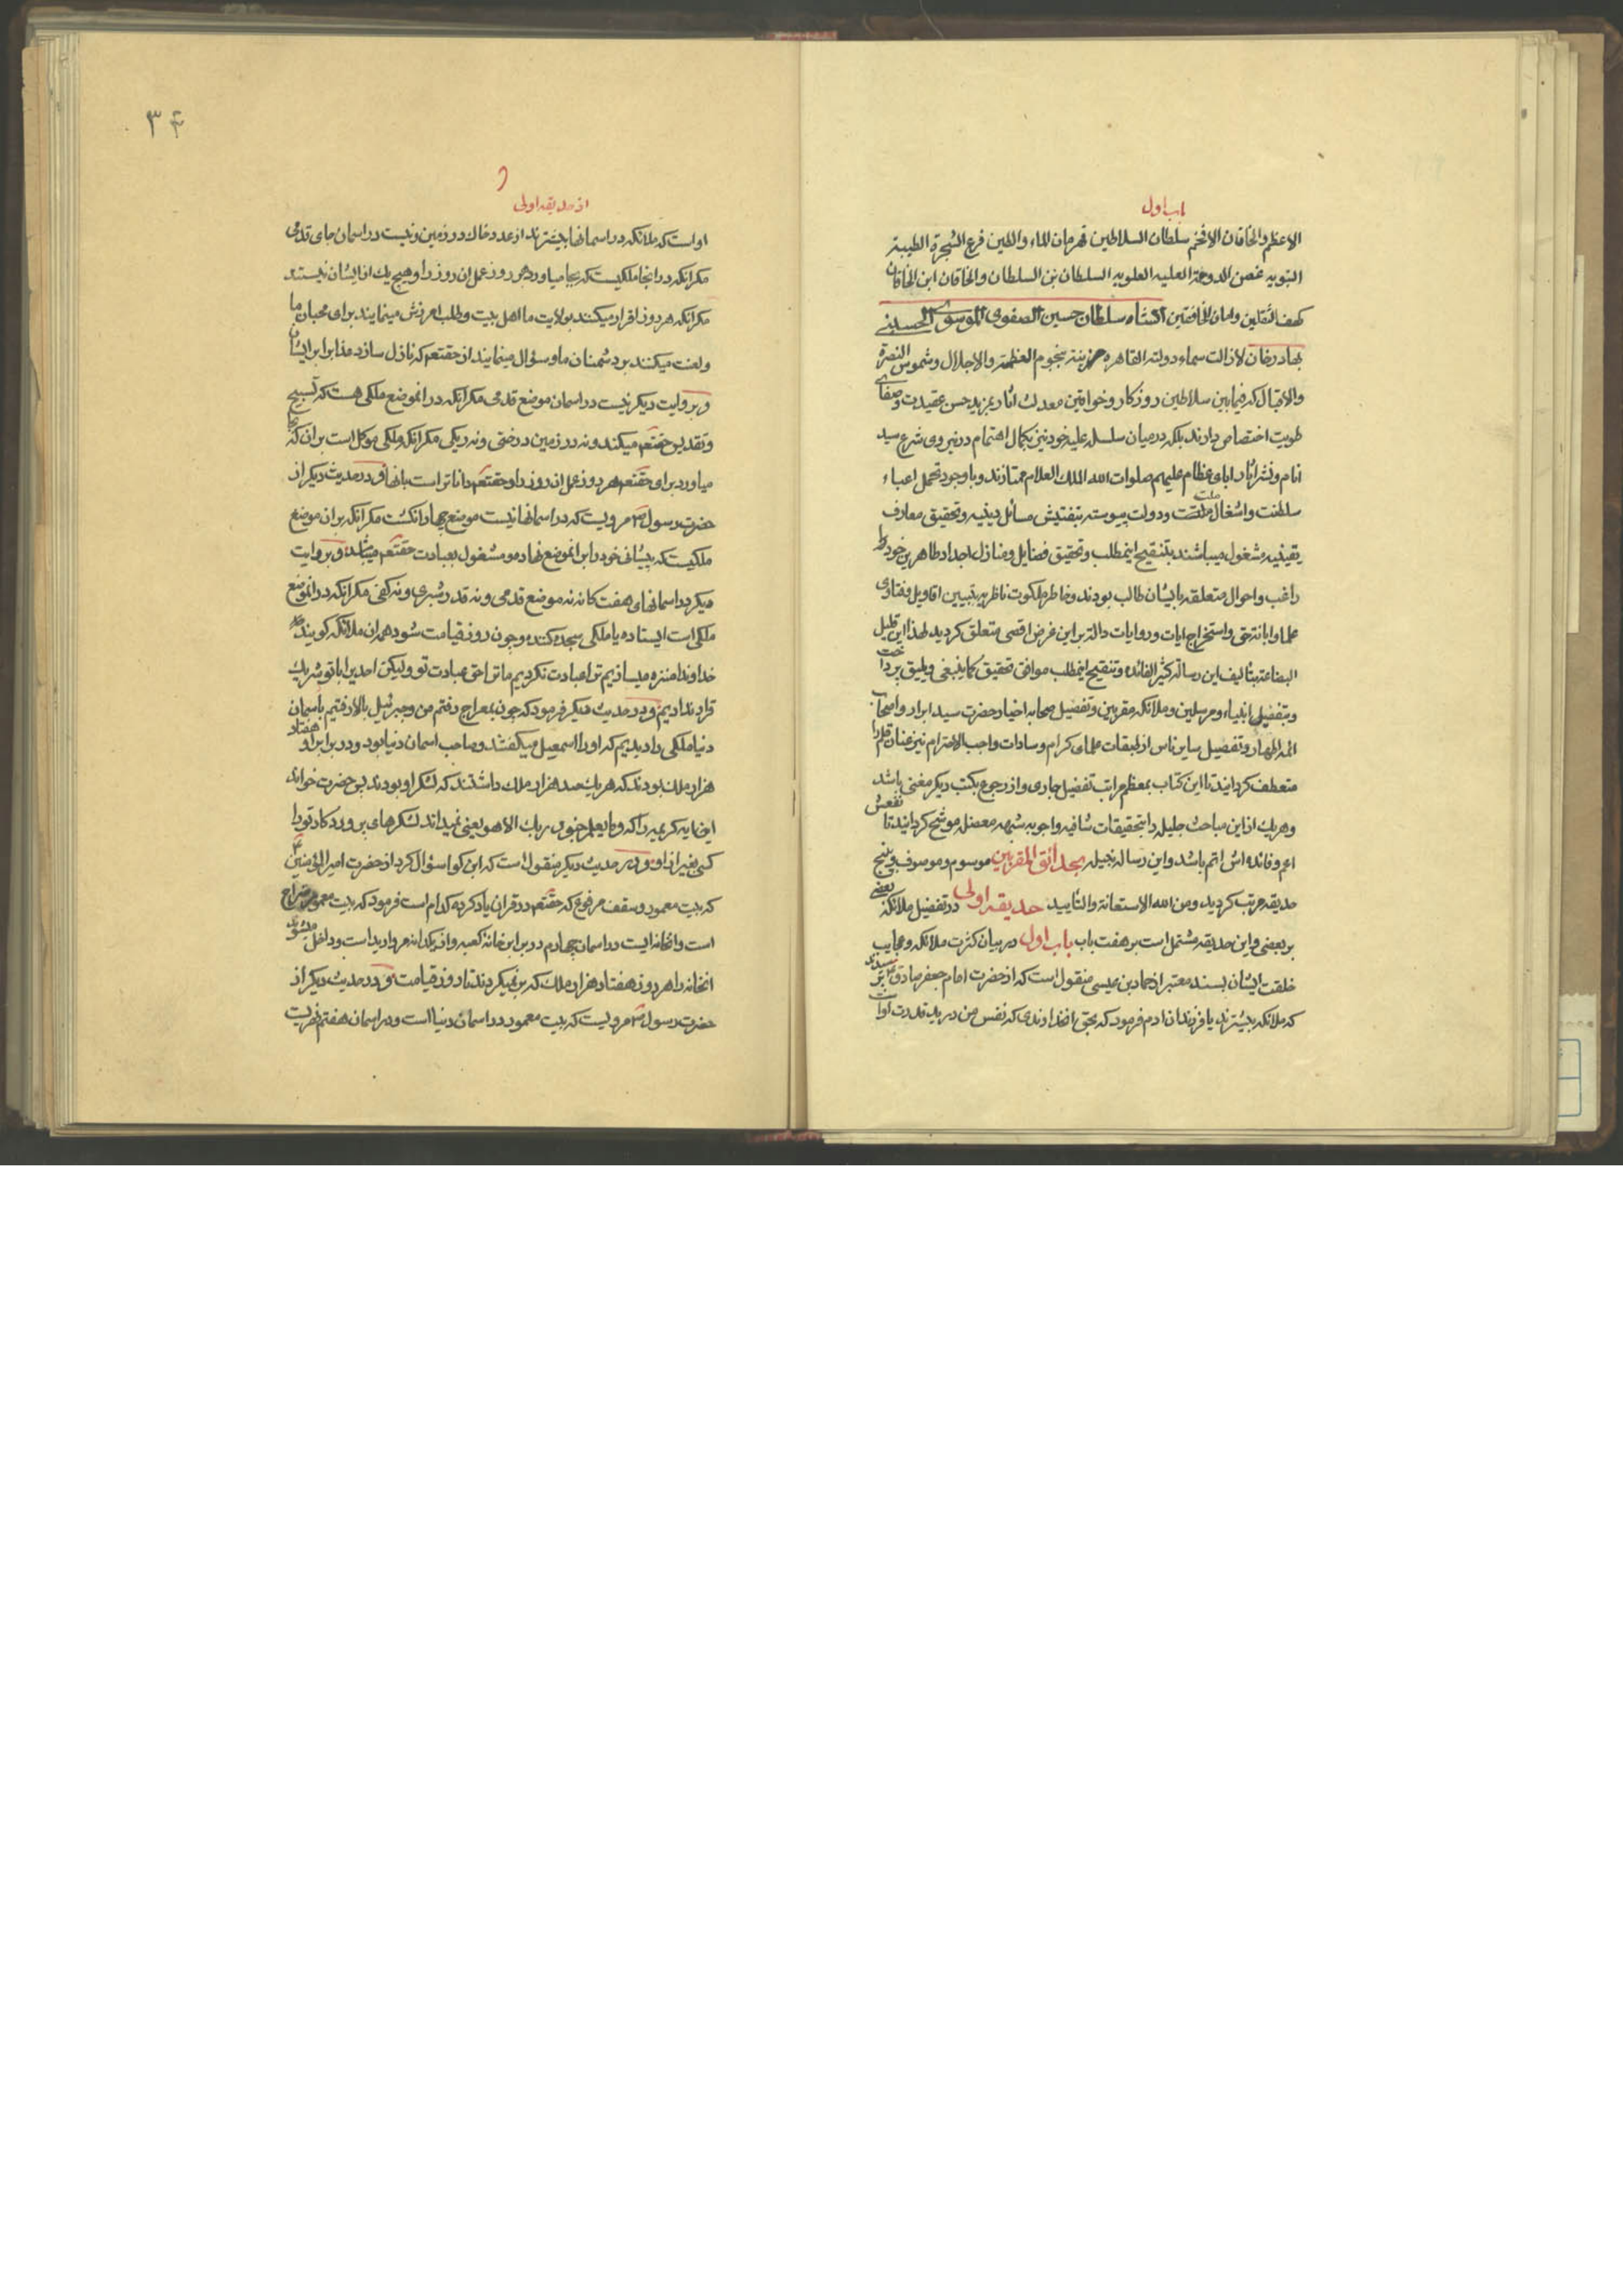 باب اول
الاعظم والخاقان الافخم سلطان السلاطین قهرمان الماء والطین فرع الشجرة الطیبة
النبویه غصن الدوحة العلیه العلویه السلطان بن السلطان والخاقان ابن الخاقان
کهف الثقلین وامان الخافقین سلطان حسین الصفوی الموسوی الحسینی
بهادرخان لازالت سماء دولته القاهره مزینة بنجوم العظمة والاجلال وشموس النصرة
والاقبال که فیمابین سلاطین روزکار وخواقین معدلت اثار بمزید حسن عقیدت وصفای
طویت اختصاص دارند بلکه در میان سلسله علیه خود نیز بکمال اهتمام در پیروی شرع سید
انام ونشر اثار ابای عظام علیهم صلوات الله الملک العلام ممتازند وباوجود تحمل اعباء
سلطنت واشغال ملت ودولت پیوسته بتفتیش مسائل دینیه وتحقیق معارف
یقینیه مشغول میباشند بتنقیح اینمطلب وتحقیق فضایل ومنازل اجداد طاهرین خود
راغب واحوال متعلقه بایشان طالب بودند وخاطر ملکوت ناظر بتبیین اقاویل وفتاوی
علما وابانت حق واستخراج ایات وروایات داله براین غرض اقصی متعلق کردید لهذا این قلیل
البضاعه بتالیف این رساله کثیر الفائده وتنقیح اینمطلب موافق تحقیق کما ینبغی ویلیق پرداخت
وبتفضیل انبیاء ومرسلین وملائکه مقربین وتفضیل صحابه اخیار حضرت سید ابرار واصحاب
ائمه اطهار وتفضیل سایر ناس از طبقات علمای کرام وسادات واجب الاحترام نیز عنان قلم را
منعطف کردانید تا این کتاب بمعظم مراتب تفضیل حاوی واز رجوع بکتب دیکر مغنی باشد
وهر یک از این مباحث جلیله را بتحقیقات شافیه واجوبه شبهه معضله موشح کردانید تا نفعش
اعم وفائده اش اتم باشد واین رساله نجیله بحدائق المقربین موسوم وموصوف وبپنج
حدیقه مرتب کردید ومن الله الاستعانة والتایید حدیقه اولی در تفضیل ملائکه بعضی
بر بعضی واین حدیقه مشتمل است بر هفت باب باب اول در بیان کثرت ملائکه وعجایب
خلقت ایشان بسند معتبر از حماد بن عیسی منقول است که از حضرت امام جعفر صادق ع پرسیدند
که ملائکه بیشترند یا فرزندان ادم فرمود که بحق انخداوندی که نفس من در ید قدرت
۳۴
از حدیقه اولی
اوست که ملائکه در اسمانها بیشترند از عدد خاک در زمین ونیست در اسمان جای قدمی
مکر انکه در انجا ملکیست که بجا میاورد هر روز عمل ان روز را وهیچ یک از ایشان نیستند
مکر انکه هر روز اقرار میکنند بولایت ما اهل بیت وطلب امرزش مینمایند برای محبان ما
ولعنت میکنند بر دشمنان ما وسؤال مینمایند از حقتعم که نازل سازد عذاب را بر ایشان
وبروایت دیکر نیست در اسمان موضع قدمی مکر انکه در انموضع ملکی هست که تسبیح
وتقدیس حقتعم میکند ونه در زمین درختی ونه ریکی مکر انکه ملکی موکل است بران که بجا
میاورد برای حقتعم هر روز عمل ان روز را وحقتعم داناتر است بانها ودر حدیث دیکر از
حضرت رسول ص مرویست که در اسمانها نیست موضع چهار انکشت مکر انکه بر ان موضع
ملکیست که پیشانی خود را بر انموضع نهاده ومشغول بعبادت حقتعم میباشد وبروایت
دیکر در اسمانهای هفت کانه نه موضع قدمی ونه قدر شبری ونه کفی مکر انکه در انموضع
ملکی است ایستاده یا ملکی سجده کننده وچون روز قیامت شود همه ان ملائکه کویند که
خداوندا منزه میسازیم ترا عبادت نکردیم ما ترا حق عبادت تو ولیکن احدیرا با تو شریک
قرار ندادیم ودر حدیث دیکر فرمود که چون بمعراج رفتم من وجبرئیل بالا رفتیم باسمان
دنیا ملکی را دیدیم که او را اسمعیل میکفتند وصاحب اسمان دنیا بود ودر برابر او هفتاد
هزار ملک بودند که هر یک صد هزار ملک داشتند که لشکر او بودند پس حضرت خواند
این ایه کریمه را که وما یعلم جنود ربک الا هو یعنی نمیداند لشکرهای پروردکار تو را
کسی بغیر از او ودر حدیث دیکر منقول است که ابن کوا سؤال کرد از حضرت امیرالمؤمنین ع
که بیت معمور وسقف مرفوع که حقتعم در قران یاد کرده کدام است فرمود که بیت معمور ضراح
است وانخانه ایست در اسمان چهارم در برابر خانه کعبه واز یکدانه مروارید است وداخل میشوند
انخانه را هر روز هفتاد هزار ملک که برنمیکردند تا روز قیامت ودر حدیث دیکر از
حضرت رسول ص مرویست که بیت معمور در اسمان دنیا است ودر اسمان هفتم نهریست